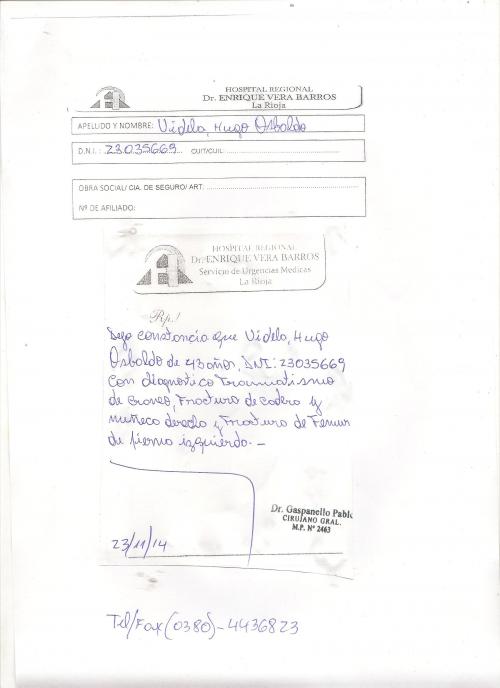 HOSPITAL REGIONAL
Dr. ENRIQUE VERA BARROS
La Rioja
APELLIDO Y NOMBRE: Videla, Hugo Osbaldo
D.N.I.: 23035669 CUIT/CUIL:
OBRA SOCIAL/ CIA. DE SEGURO/ ART:
Nº DE AFILIADO:
HOSPITAL REGIONAL
Dr. ENRIQUE VERA BARROS
Servicio de Urgencias Medicas
La Rioja
Rp.!
Dejo constancia que Videla, Hugo
Osbaldo de 43 años, DNI: 23035669
Con diagnostico Traumatismo
de Craneo, Fractura de Codera y
muñeca derecha y Fractura de Femur
de pierna izquierda.-
Dr. Gaspanello Pablo
CIRUJANO GRAL.
M.P. Nº 2463
23/11/14
Tel/Fax (0380)-4436823